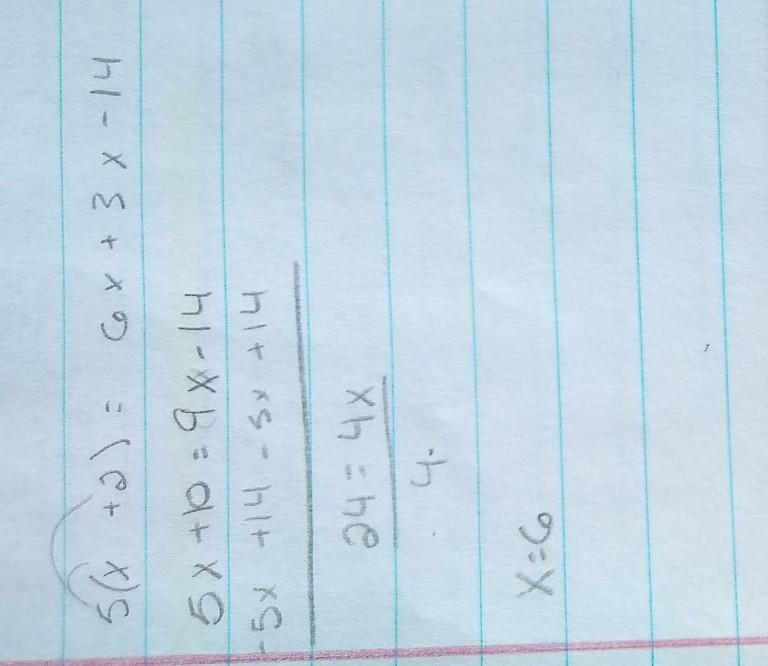 5(x +2) = 6x + 3x - 14
5x + 10 = 9x - 14
-5x +14 - 5x +14
24 = 4x
4
x = 6